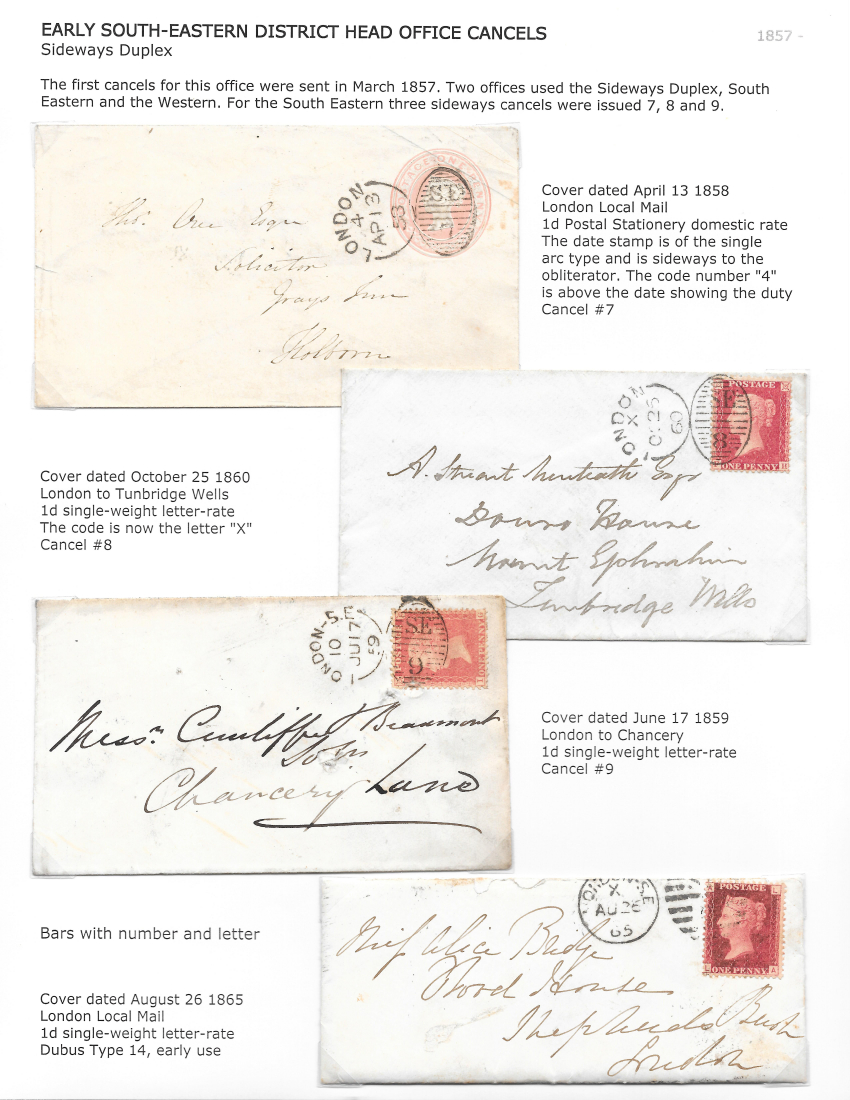 EARLY SOUTH-EASTERN DISTRICT HEAD OFFICE CANCELS
1857 -
Sideways Duplex
The first cancels for this office were sent in March 1857. Two offices used the Sideways Duplex, South
Eastern and the Western. For the South Eastern three sideways cancels were issued 7, 8 and 9.
LONDON
4
AP 13
58
S.E
7
Esqre
Solicitor
Grays Inn
Holborn
Cover dated April 13 1858
London Local Mail
1d Postal Stationery domestic rate
The date stamp is of the single
arc type and is sideways to the
obliterator. The code number "4"
is above the date showing the duty
Cancel #7
LONDON
X
OC 25
60
SE
8
POSTAGE
ONE PENNY
A. Stuart Menteath Esqr
Douro House
Mount Ephraim
Tunbridge Wells
Cover dated October 25 1860
London to Tunbridge Wells
1d single-weight letter-rate
The code is now the letter "X"
Cancel #8
LONDON-S.E
10
JU 17
59
SE
9
Messrs Cunliffe & Beaumont
Chancery Lane
Cover dated June 17 1859
London to Chancery
1d single-weight letter-rate
Cancel #9
LONDON-SE
X
AU 26
65
POSTAGE
ONE PENNY
Miss Alice Bridge
Wood House
Shepherds Bush
London
Bars with number and letter
Cover dated August 26 1865
London Local Mail
1d single-weight letter-rate
Dubus Type 14, early use